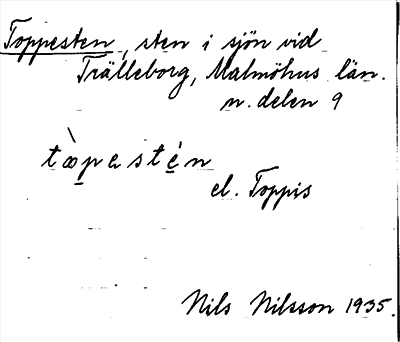 Toppesten, sten i sjön vid
Trälleborg, Malmöhus län.
n. delen 9
tòpestén
el. Toppis
Nils Nilsson 1935.